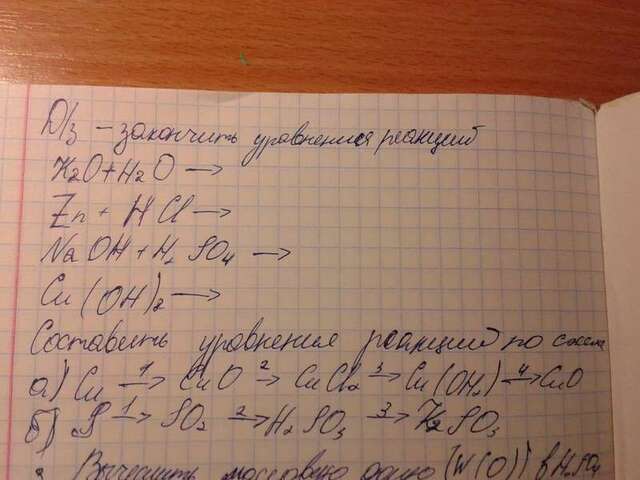 Д/з - закончить уравнения реакций
K2O+H2O →
Zn + HCl →
NaOH + H2SO4 →
Cu(OH)2 →
Составить уравнения реакций по схеме
а) Cu 1→ CuO 2→ CuCl2 3→ Cu(OH2) 4→ CuO
б) S 1→ SO2 2→ H2SO3 3→ K2SO3
Вычислить массовую долю (W(O)) в H2SO4